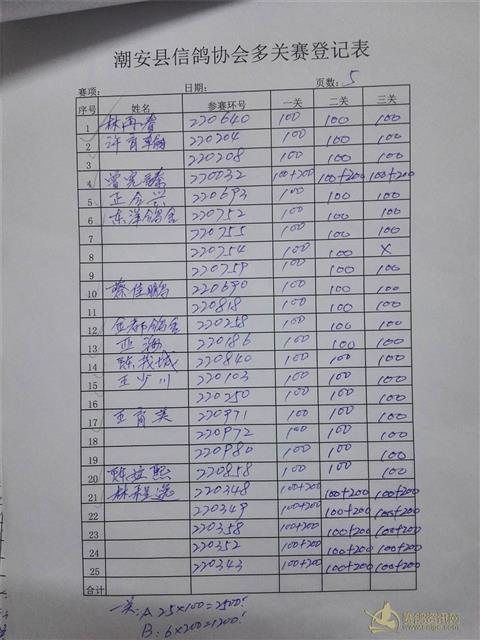 潮安县信鸽协会多关赛登记表
赛项: 日期: 页数: 5
序号 姓名 参赛环号 一关 二关 三关
1 林再春 220640 100 100 100
2 许育 220204 100 100 100
3 220208 100 100 100
4 220032 100+200 100+200 100+200
5 220693 100 100 100
6 东洋鸽舍 220752 100 100 100
7 220755 100 100 100
8 220754 100 100 X
9 220759 100 100 100
10 蔡佳鹏 220690 100 100 100
11 220818 100 100 100
12 金都鸽舍 220258 100 100 100
13 220186 100 100 100
14 陈茂城 220840 100 100 100
15 王少川 220103 100 100 100
16 220250 100 100 100
17 王育英 220971 100 100 100
18 220972 100 100 100
19 220980 100 100 100
20 陈拉熙 220858 100 100 100
21 林程 220348 100+200 100+200 100+200
22 220349 100+200 100+200 100+200
23 220358 100+200 100+200 100+200
24 220352 100+200 100+200 100+200
25 220343 100+200 100+200 100+200
合计
一关: A 25×100=2500!
B: 6×200=1200!
赛鸽资讯网